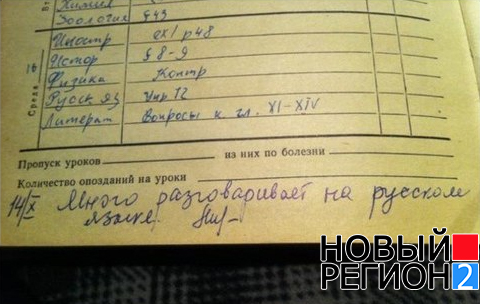 Химия
Зоология § 43
Иностр ex1 p 48
Истор § 8-9
Физика Контр
Русск яз Упр 12
Литерат Вопросы к гл. XI-XIV
Среда 16
Пропуск уроков из них по болезни
Количество опозданий на уроки
14/X Много разговаривает на русском
языке.
НОВЫЙ
РЕГИОН 2